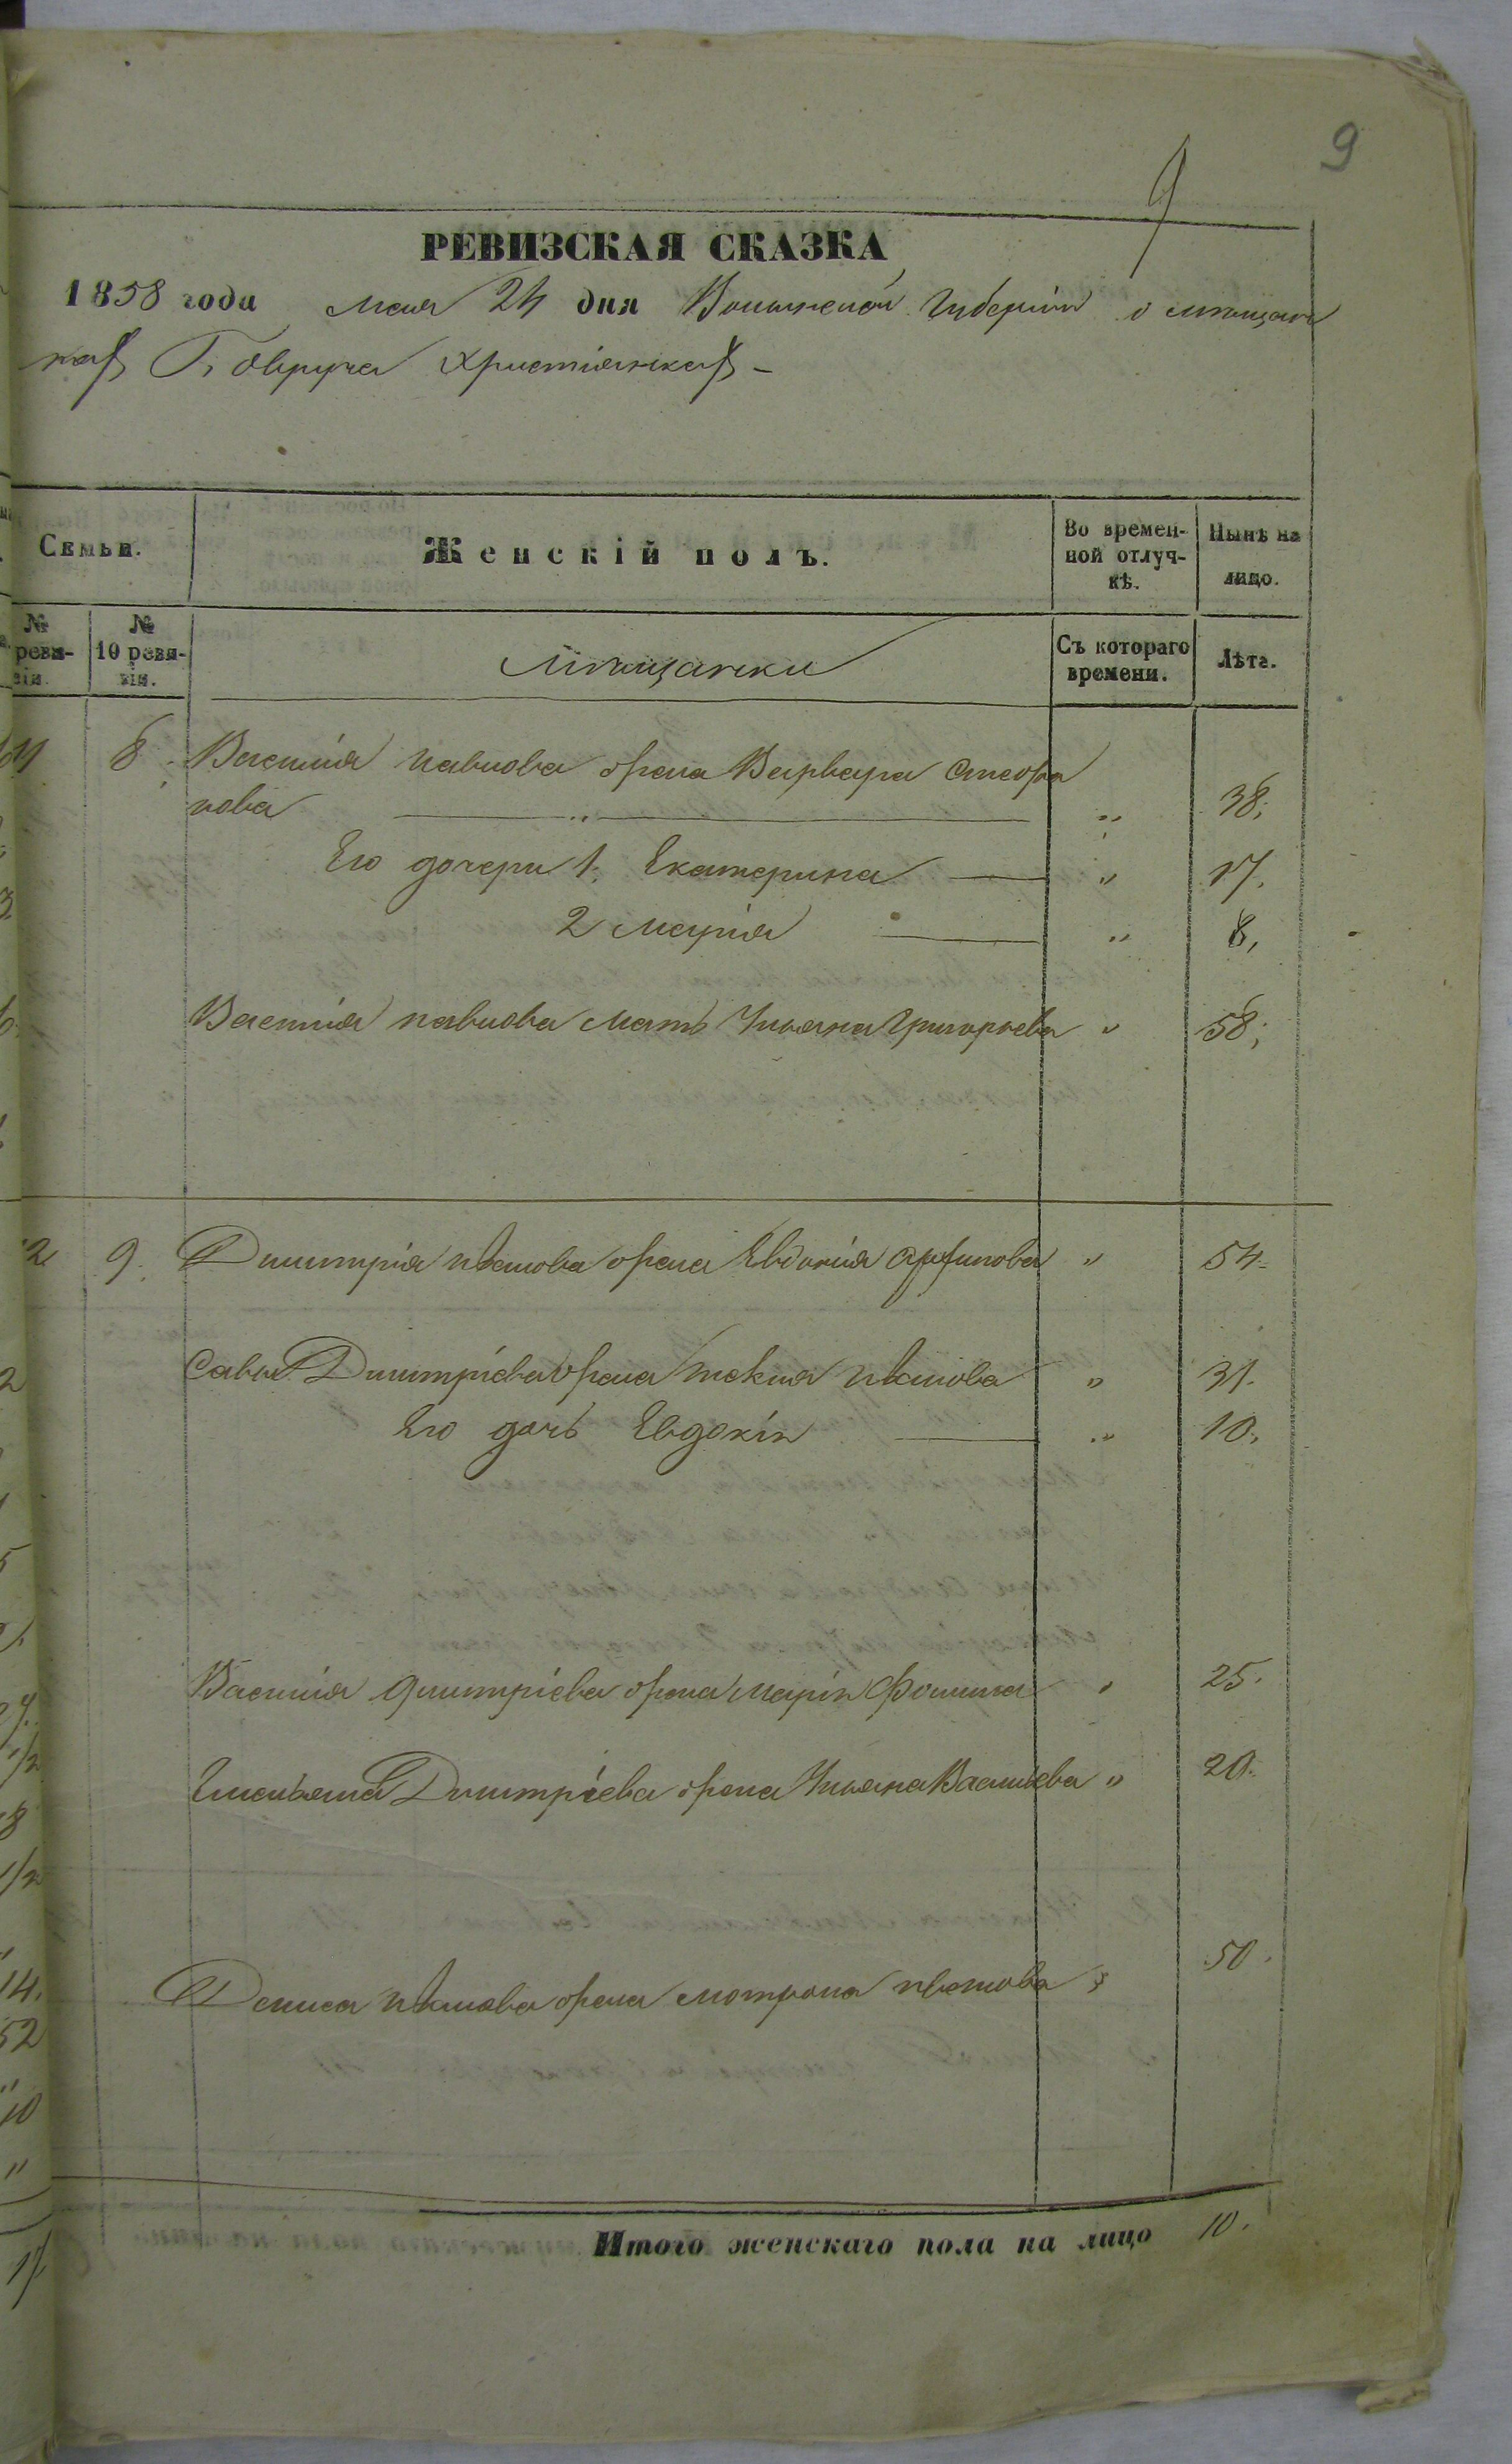 9
9
РЕВИЗСКАЯ СКАЗКА
1858 года Мая 24 дня Волынской Губерніи о мѣщан
кахъ Г. Овруча Христіанкахъ –
Семьи.
Женскій полъ.
Во времен-
ной отлуч-
кѣ.
Нынѣ на
лицо.
№
реви-
зіи.
№
10 реви-
зіи.
Мѣщанки
Съ котораго
времени.
Лѣта.
8. Василія Павлова жена Варвара Стефа
нова „ 38;
Его дочери 1. Екатерина „ 17.
2 Марія „ 8,
Василія Павлова Мать Ульяна Григорьева „ 58;
9. Дмитрія Иванова жена Евдокія „ 54.
Савы Дмитріева жена Текля Иванова „ 31.
Его дочь Евдокія „ 10.
Василія Дмитріева жена Марія Фомина „ 25.
Емельяна Дмитріева жена Ульяна Васильева „ 20.
Дениса Иванова жена Мотрона „ 50.
Итого женскаго пола на лицо 10.